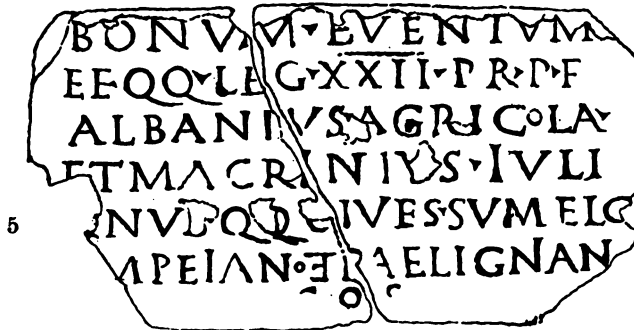 BONVM·EVENTVM
EEQQ·LEG·XXII·PR·P·F
ALBANIVS·AGRICOLA·
ET MACRINIVS·IVLI
5 NVS QQ CIVES·SVMELO
APEIANO·ET AELIGNAN
O